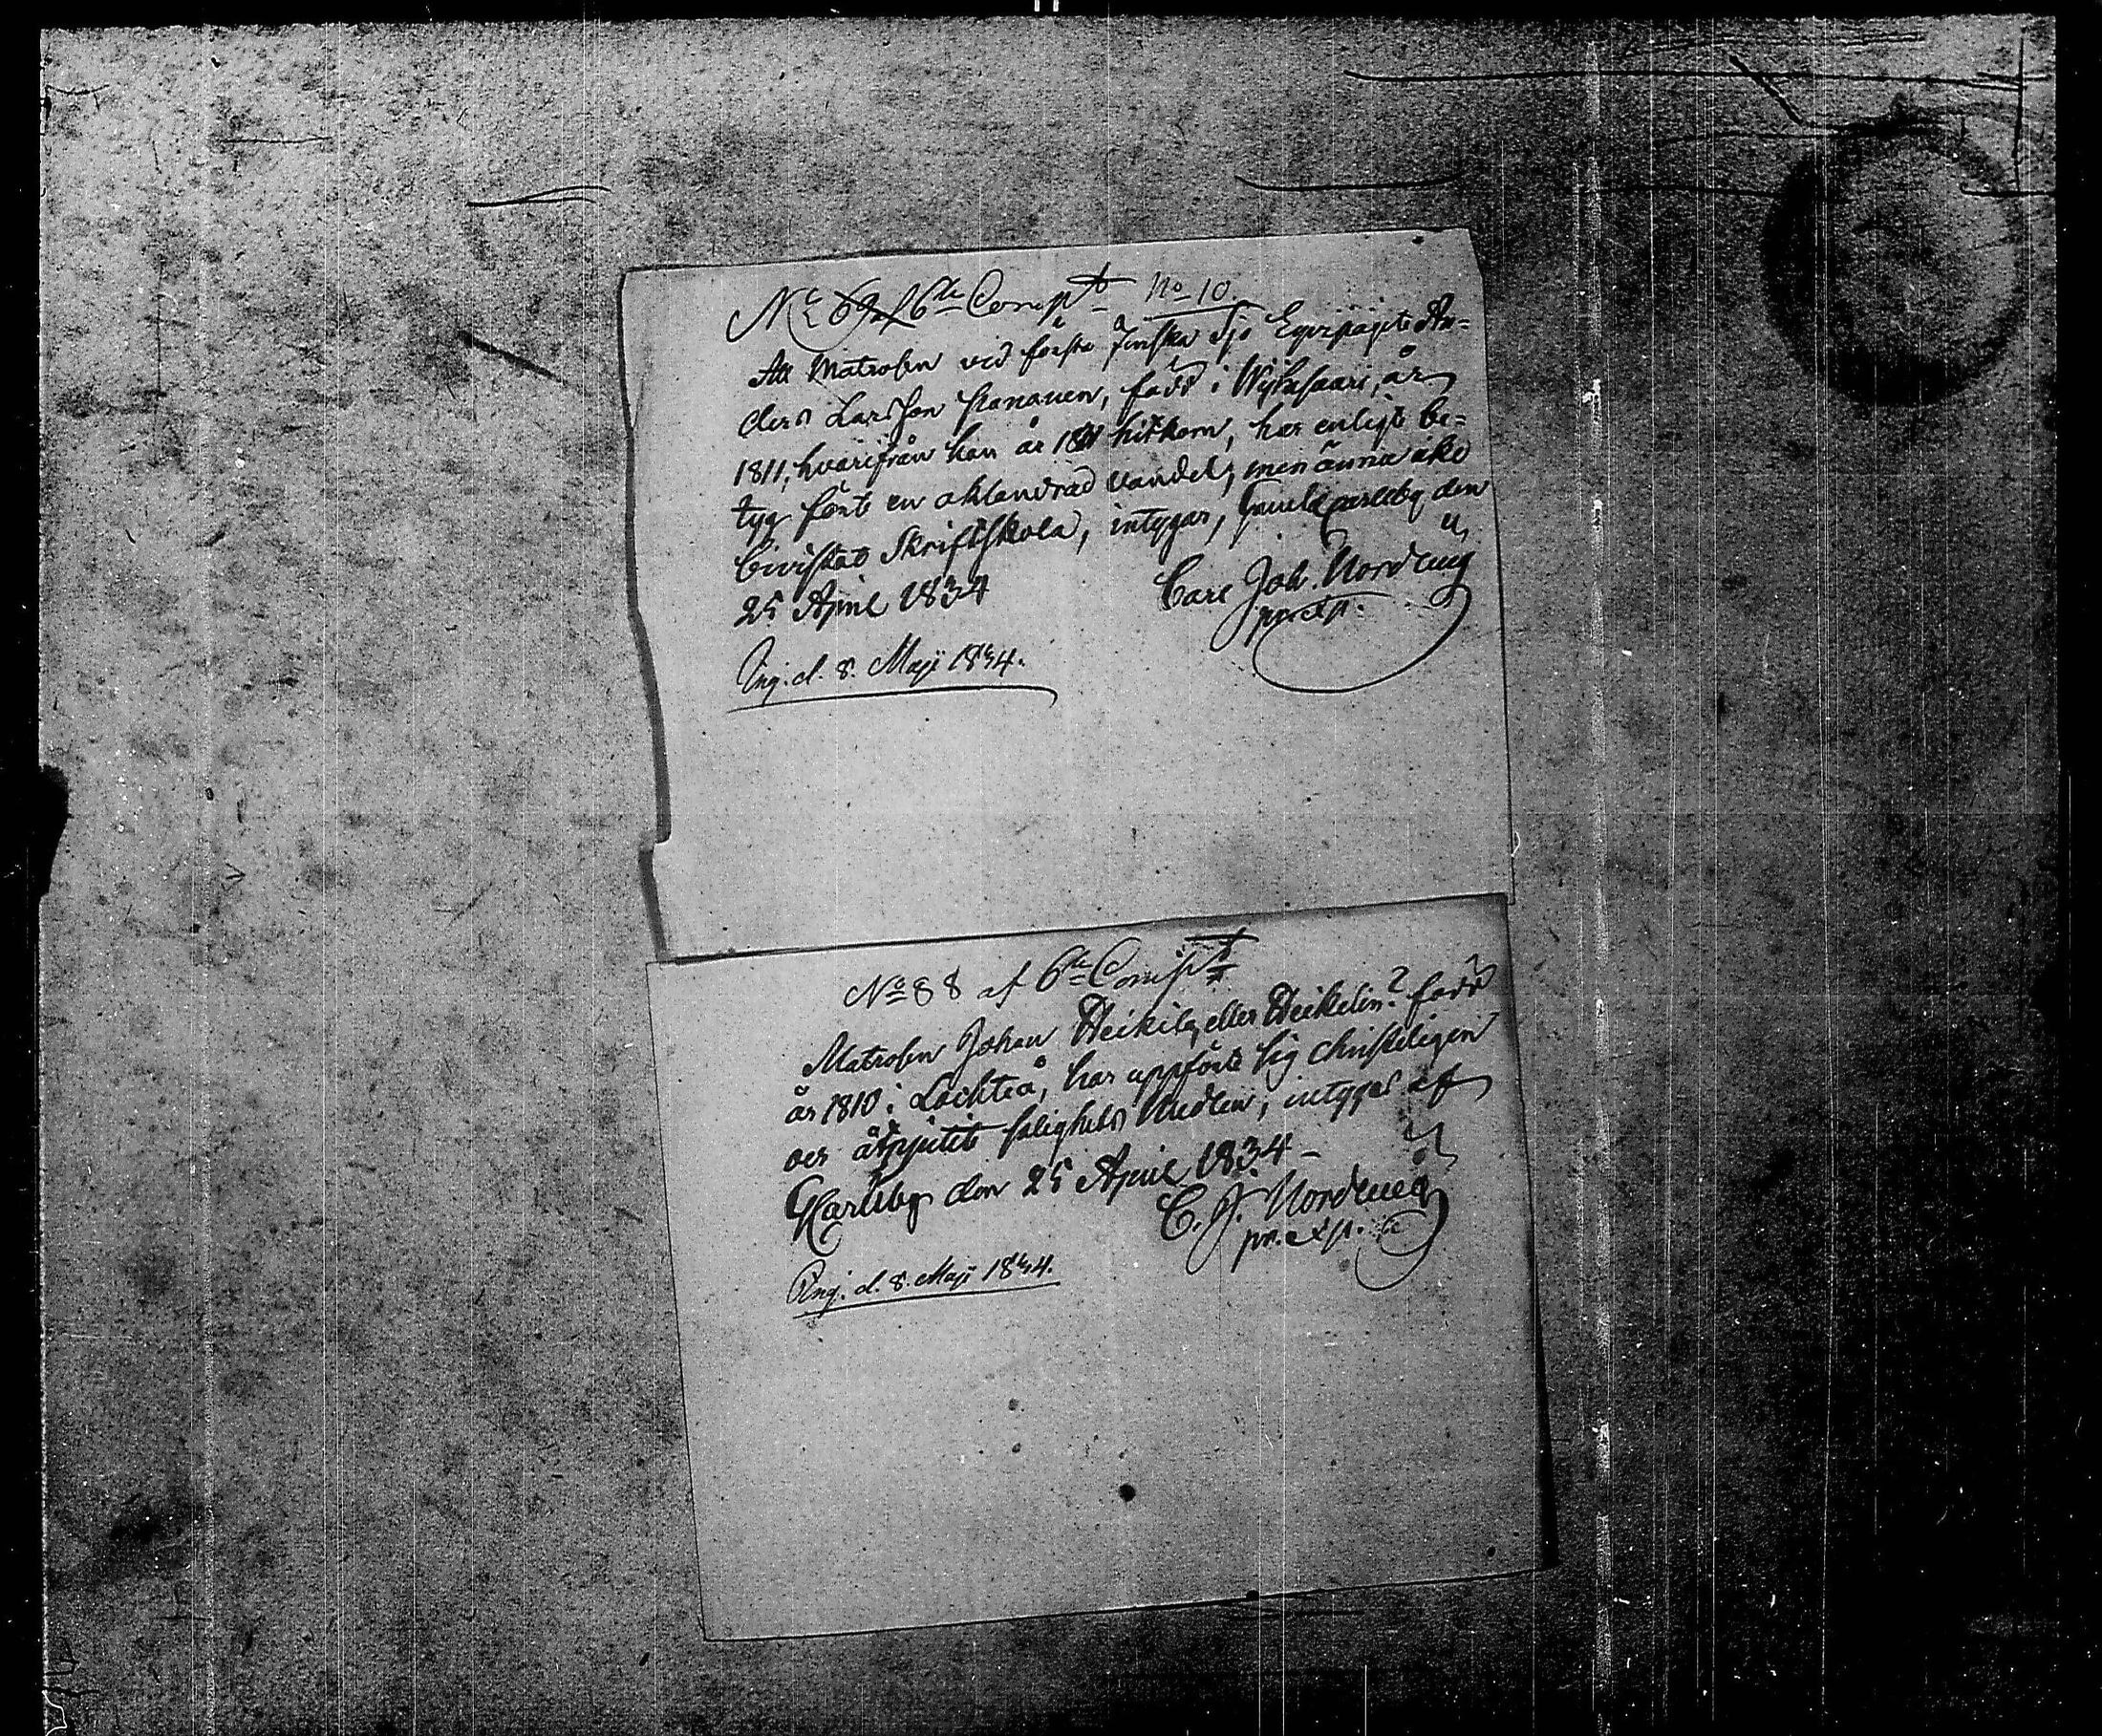 No 69 af 6te Compt No 10.
Att Matrosen vid första Finska Sjö Equipaget An-
ders Larsson Hananen, född i Wijtasaari, år
1811, hvarifrån han år 18 hitkom, har enligt be-
tyg fört en oklandrad vandel, men änna icke
bevistat Skriftskola, intygar, Gamlacarleby den
25 April 1834
Carl Joh. Nordling
pr. exp.
Ing. d. 8. Maji 1834.
No 88 af 6te Compt
Matrosen Johan Heikilä, eller Heikelin? född
år 1810 i Lochteå, har uppfört sig christeligen
och åtnjutit salighets Medlen, intygas af
GKarleby den 25 April 1834
C. J. Nordling
pr. exp.
Ing. d. 8. Maji 1834.